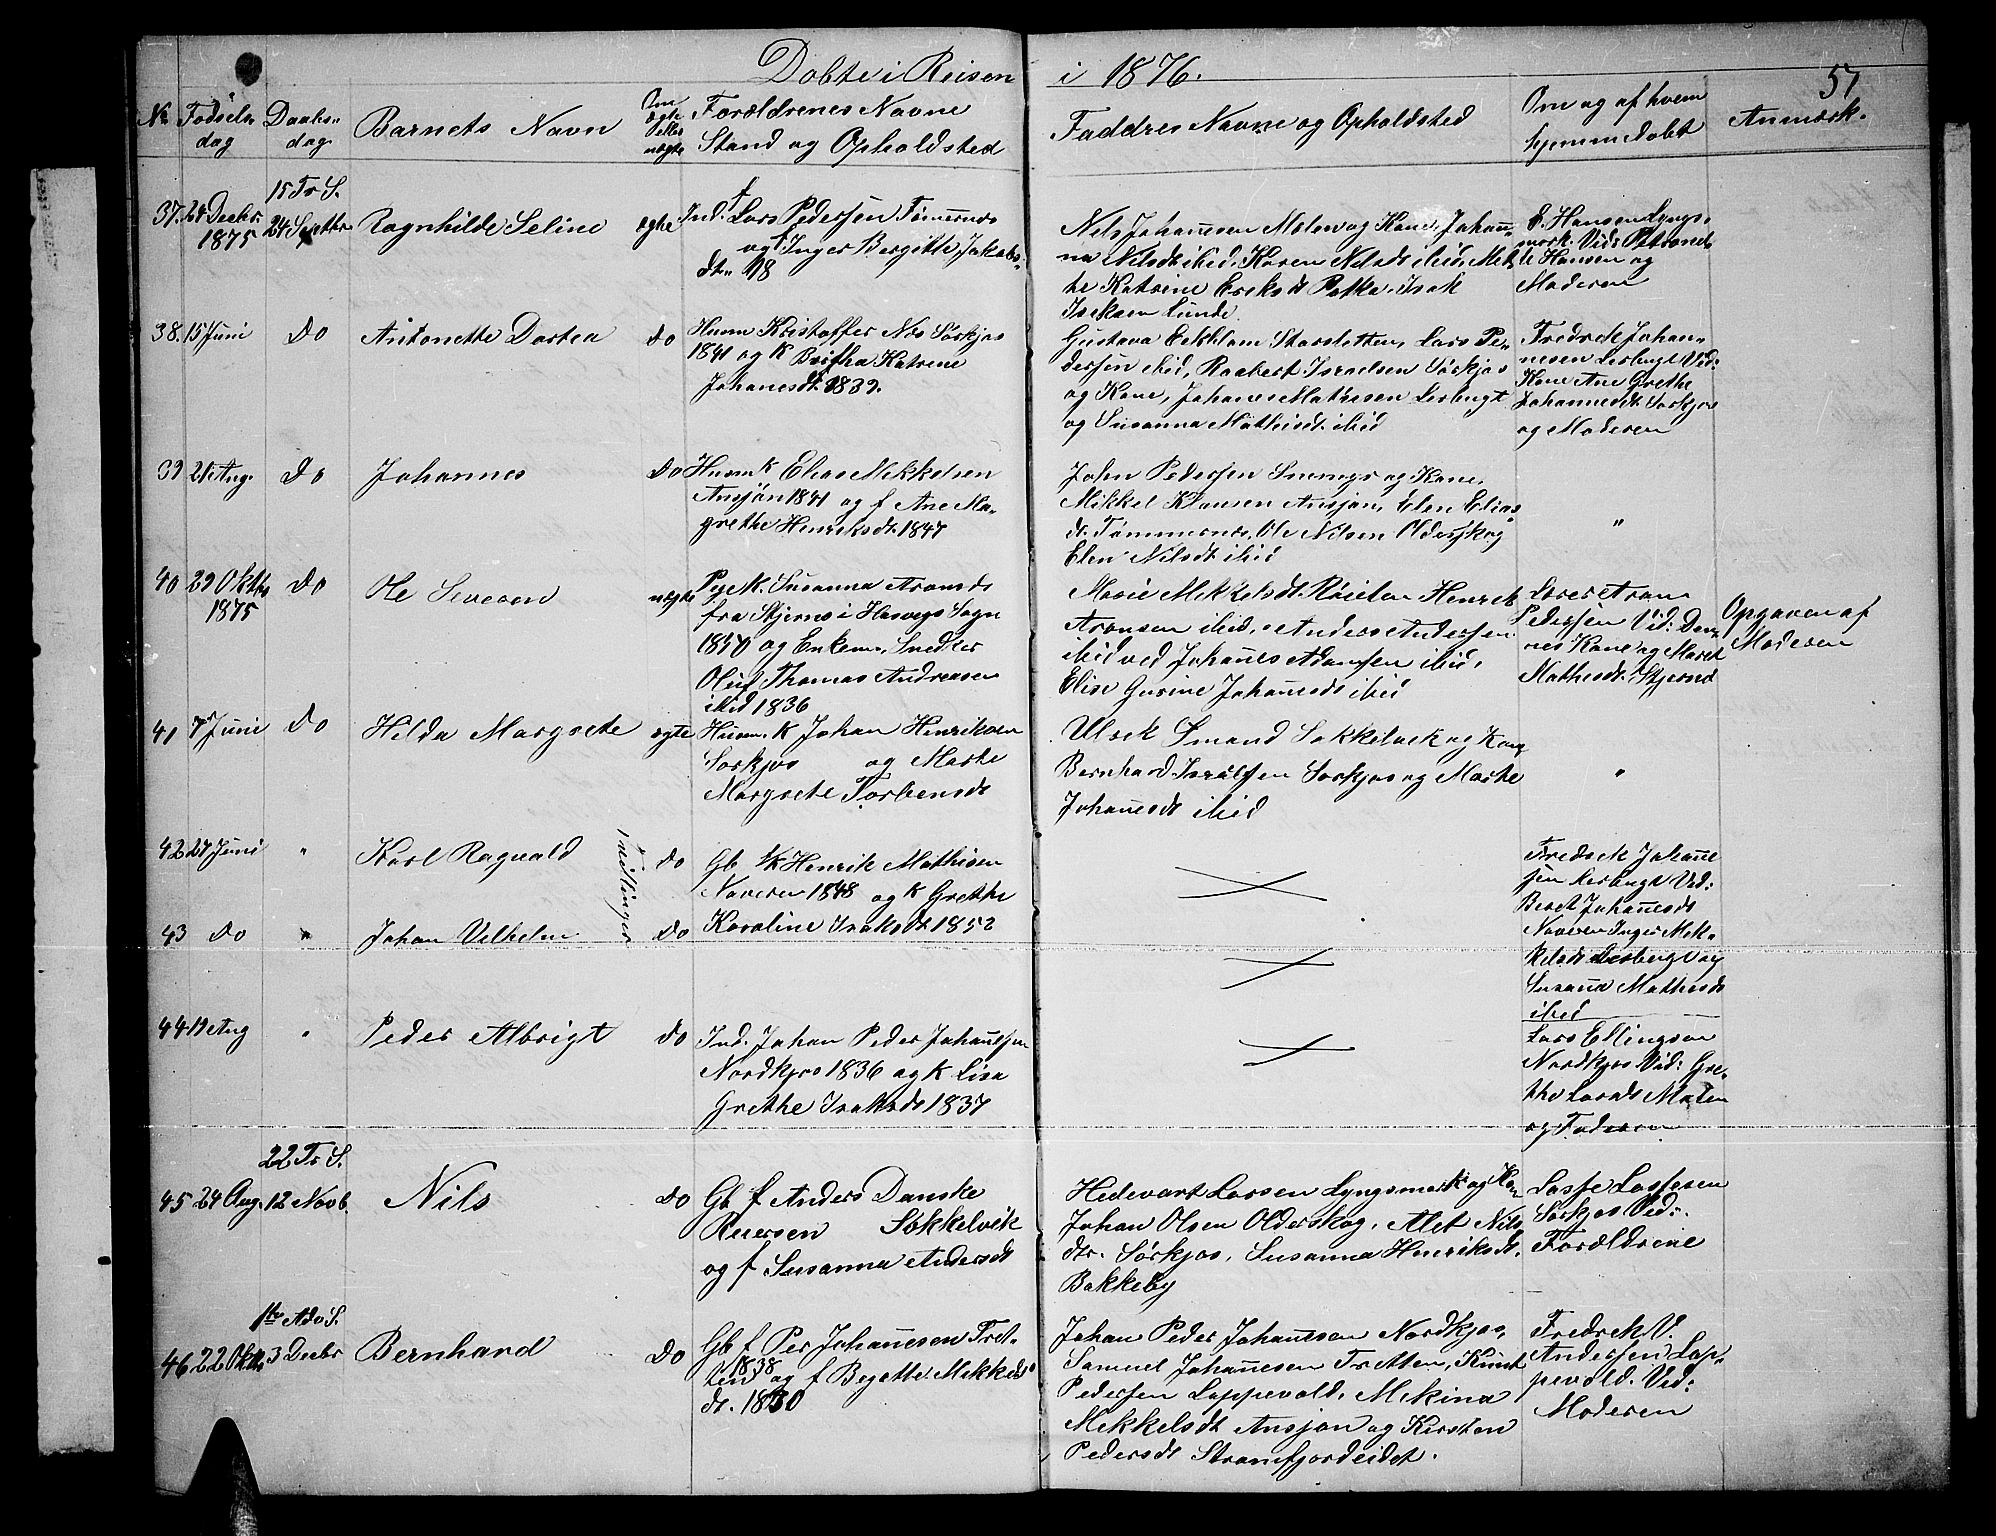 Døbte i Reisen i 1876.
51
No Fødsels- dag
Daabs- dag
Barnets Navn
Om ægte eller uægte
Forældrenes Navne
Stand og Opholdsted
Faddres Navne og Opholdsted
Om og af hvem
hjemmedøbt
Anmærk.
15 Tr S.
37. 24 Decbr. 1875
24 Septbr.
Ragnhilde Seline
ægte
Ind. f Lars Pedersen Tømernæs
og f Inger Bergitte Jakobs-
dt.
Nils Johannesen Molen og Kone, Johan-
na Nilsdt ibid, Karen Nilsdt ibid, Met-
te Katrine Eriksdt Potka, Isak
Isaksen Lunde.
E. Hansen Lyngs-
mark. Vid: Petronel-
le Hansen og
Moderen
38. 15 Juni
Do
Antonette Dortea
Do
Husm Kristoffer Nils Sørkjos
1841 og K Britha Katrine
Johanesdt. 1839.
Gustava Eekblom Storsletten, Lars Pe-
dersen ibid, Raabert Israelsen Sørkjos
og Kone, Johanes Mathisen Leirbugt
og Susanna Mathisdt. ibid
Fredrek Johan-
nesen Leirbugt Vid:
Kone Ane Grethe
Johannesdt. Sørkjos
og Moderen
39 21 Aug.
Do
Johannes
Do
Husm K Elias Mikkelsen
Ansjøn 1841 og f Ane Ma-
grethe Henriksdt. 1847
John Pedersen Snemyr og Kone,
Mikkel Klausen Ansjøn, Elen Elias
dt. Tømmernes, Ole Nilsen Olderskog
Elen Nilsdt ibid
"
40 29 Oktbr 1875
Do
Ole Severen
uægte
Pige K. Susanna Aronsdt
fra Stjernø i Hasvigs Sogn
1840 og Enkem. Snedker
Oluf Thomas Andreasen
ibid 1836
Marie Mikkelsdt. Røielen Henrik
Aronsen ibid, Anders Andersen
ibid ved Johanes Adamsen ibid,
Elise Gurine Johanesdt ibid
Lærer Aron
Pedersen Vid: Den-
nes Kone og Maret
Mathisdt. Stjernø
Opgaven af
Moderen
41 7 Juni
Do
Hilda Margrete
ægte
Husm. K Johan Henriksen
Sørkjos og Marte
Margrete Torbensdt
Ulrik Smand Sokkelvik og Kone
Bernhard Israelsen Sørkjos og Marte
Johanesdt ibid
"
42 27 Juni
"
Karl Ragvald
Tvillinger
Do
Gb K Henrik Mathisen
Naveren 1848 og K Grethe
Karoline Isaksdt. 1852
Fredrek Johane
sen Leirbugt Vid:
Beret Johanesdt
Naveren Inger Mik-
kelsdt Leirbugt og
Susanna Mathisdt
ibid
43 Do
"
Johan Vilhelm
Do
44 19 Aug
"
Peder Albrigt
Do
Ind. Johan Peder Johannesen
Nordkjos 1836 og K Lisa
Grethe Isaksdt 1837
Lars Ellingsen
Nordkjos Vid: Gre-
the Larsdt Molen
og Faderen
22 Tr S.
45 24 Aug. 12 Novb.
Nils
Do
Gb f Anders Danske
Søkkelvik
og f Susanna Andersdt
Hedevart Larsen Lyngsmark og Kone
Johan Olsen Olderskog, Alet Nils
dtr. Sørkjos, Susanna Henriksdt.
Bakkeby
Lasse Lassesen
Sørkjos Vid:
Forældrene
1ste Adv S.
46 22 Oktbr 3 Decbr
Bernhard
Do
Gb f Per Johannesen Tret-
ten 1838 og f Begette Mikkels
dt. 1830
Johan Peder Johannesen Nordkjos,
Samuel Johannesen Tretten, Knut
Pedersen Lappevold, Mekina
Mekkelsdt Ansjøn og Kirsten
Pedersdt Straumfjordeidet.
Fredrek V.
Andersen Lap-
pevold. Vid:
Moderen